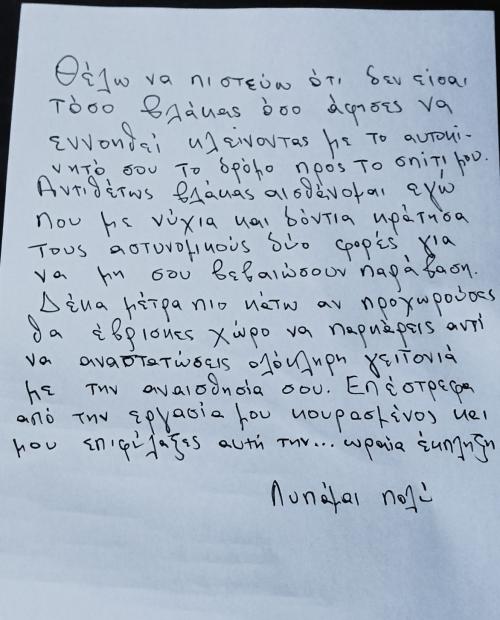 Θέλω να πιστεύω ότι δεν είσαι
τόσο βλάκας όσο άφησες να
εννοηθεί κλείνοντας με το αυτοκί-
νητό σου το δρόμο προς το σπίτι μου.
Αντιθέτως βλάκας αισθάνομαι εγώ
που με νύχια και δόντια κράτησα
τους αστυνομικούς δύο φορές για
να μη σου βεβαιώσουν παράβαση.
Δέκα μέτρα πιο κάτω αν προχωρούσες
θα έβρισκες χώρο να παρκάρεις αντί
να αναστατώσεις ολόκληρη γειτονιά
με την αναισθησία σου. Επέστρεφα
από την εργασία μου κουρασμένος και
μου επιφύλαξες αυτή την... ωραία έκπληξη
Λυπάμαι πολύ